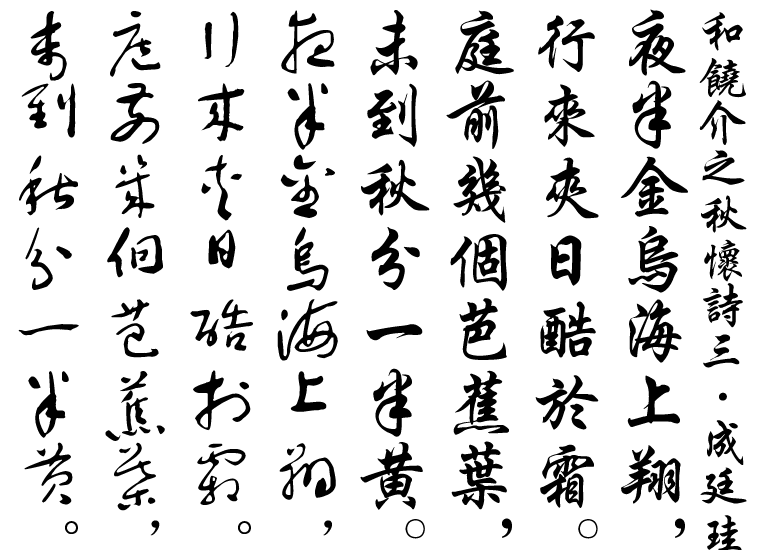 和饒介之秋懷詩三·成廷珪
夜半金烏海上翔，
行來夾日酷於霜。
庭前幾個芭蕉葉，
未到秋分一半黃。
夜半金烏海上翔，
行來夾日酷於霜。
庭前幾個芭蕉葉，
未到秋分一半黃。